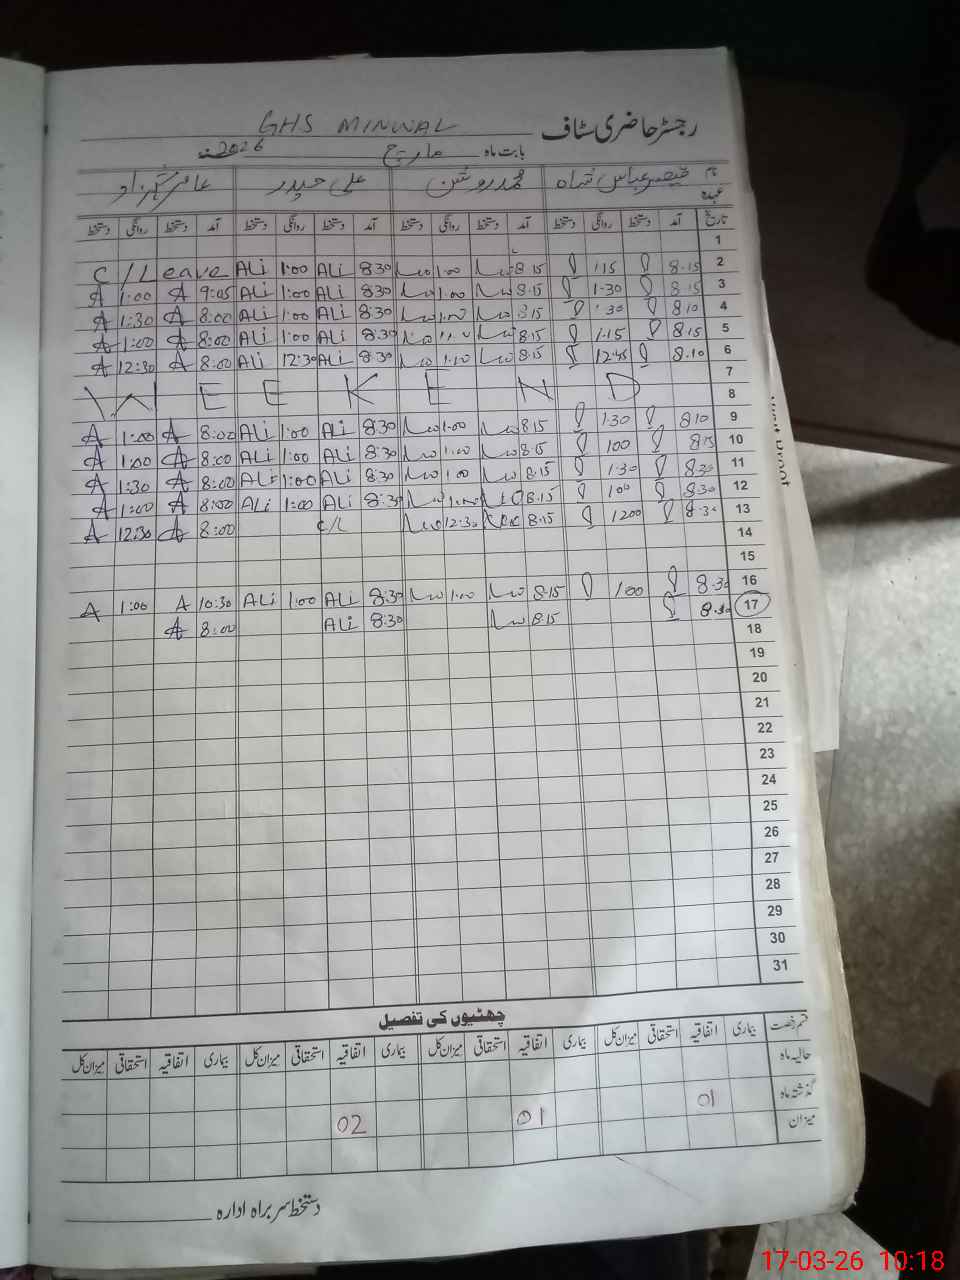 رجسٹر حاضری سٹاف GHS MINWAL
بابت ماہ مارچ 2026
نام قیصر عباس شاہ محمد روشن علی حیدر عامر شہزاد
عہدہ
تاریخ آمد دستخط روانگی دستخط آمد دستخط روانگی دستخط آمد دستخط روانگی دستخط آمد دستخط روانگی دستخط
1
C/Leave ALi 1:00 ALi 8:30 1:00 8:15 1:15 8.15 2
A 1:00 A 9:05 ALi 1:00 ALi 8:30 1:00 8:15 1-30 8:15 3
A 1:30 A 8:00 ALi 1:00 ALi 8:30 1:00 8:15 1:30 8:10 4
A 1:00 A 8:00 ALi 1:00 ALi 8:30 8:15 1.15 8:15 5
A 12:30 A 8:00 ALi 12:30 ALi 8:30 1:10 8:15 12:45 8.10 6
7
WEEKEND 8
A 1:00 A 8:00 ALi 1:00 ALi 8:30 1:00 8:15 1:30 810 9
A 1:00 A 8:00 ALi 1:00 ALi 8:30 1:00 8:15 100 815 10
A 1:30 A 8:00 ALi 1:00 ALi 8:30 1:00 8:15 1:30 8:30 11
A 1:00 A 8:00 ALi 1:00 ALi 8:30 1:00 8:15 100 8:30 12
A 12:30 A 8:00 C/L 12:30 8:15 1200 8:30 13
14
15
A 1:00 A 10:30 ALi 1:00 ALi 8:30 1:00 8:15 100 8:30 16
A 8:00 ALi 8:30 8:15 8:30 17
18
19
20
21
22
23
24
25
26
27
28
29
30
31
چھٹیوں کی تفصیل
قسم رخصت بیماری اتفاقیہ استحقاقی میزان کل بیماری اتفاقیہ استحقاقی میزان کل بیماری اتفاقیہ استحقاقی میزان کل بیماری اتفاقیہ استحقاقی میزان کل
حالیہ ماہ
گذشتہ ماہ 01 01 02
میزان
دستخط سربراہ ادارہ
17-03-26 10:18